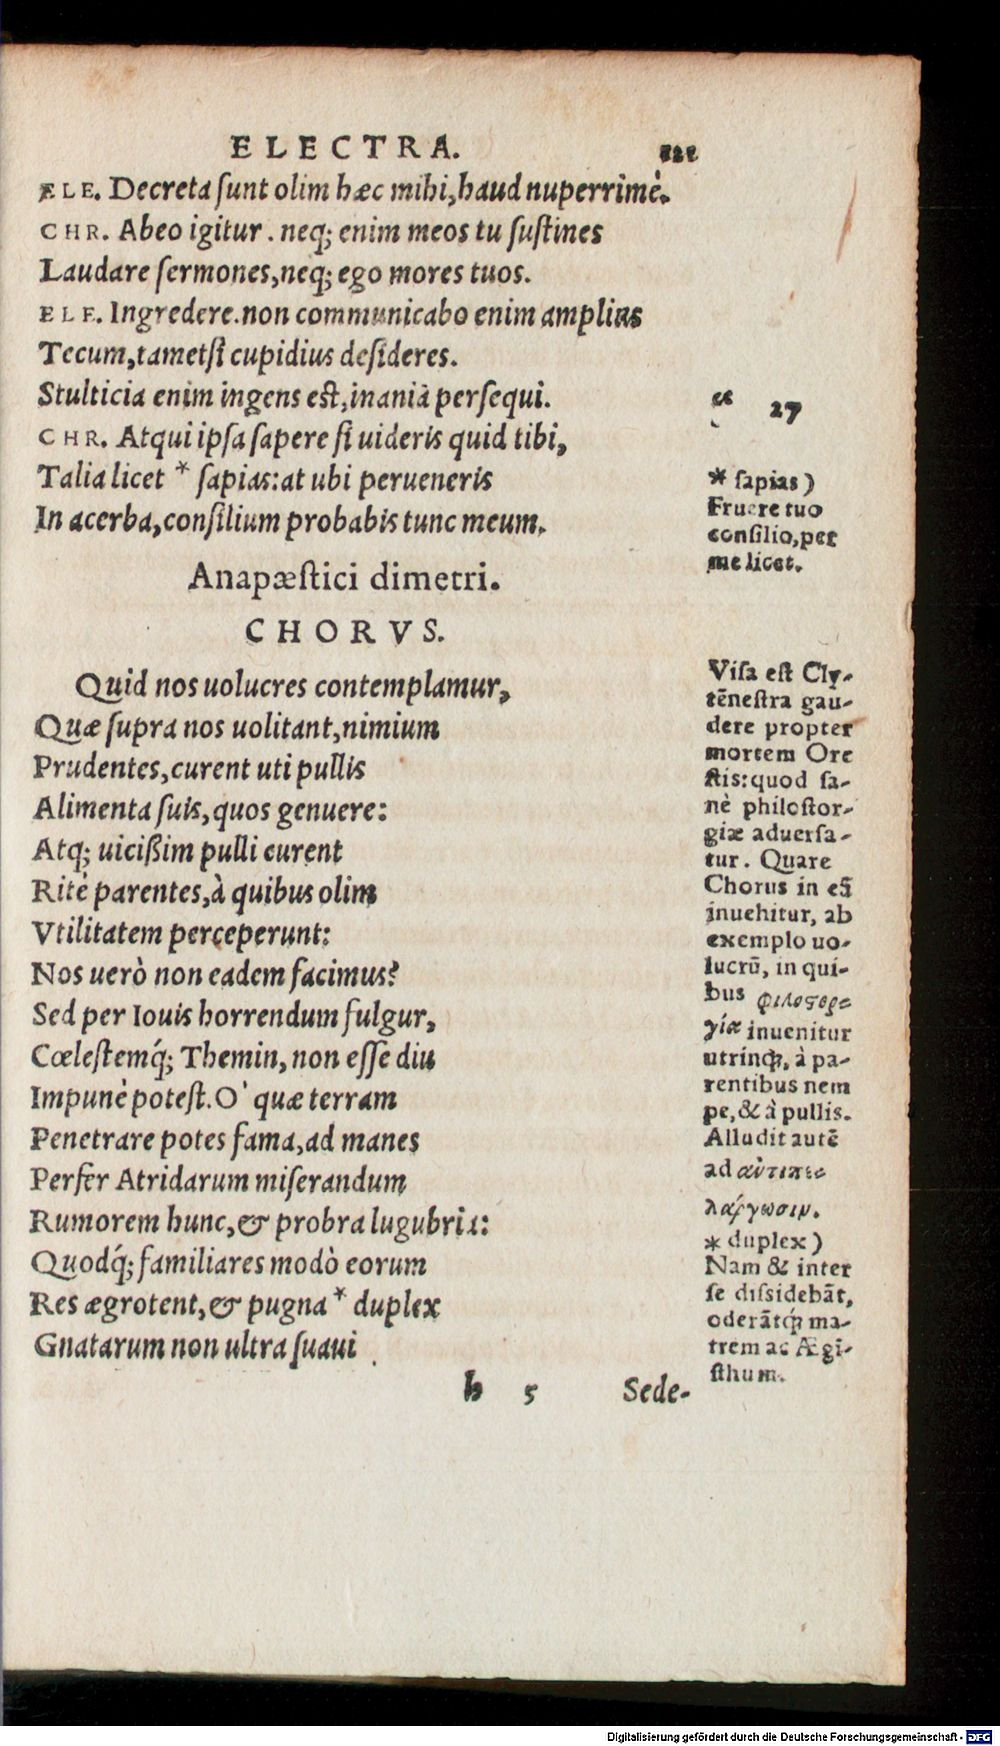 ELECTRA. 121
ELE. Decreta ſunt olim hæc mihi, haud nuperrimè.
CHR. Abeo igitur. neq; enim meos tu ſuſtines
Laudare ſermones, neq; ego mores tuos.
ELE. Ingredere. non communicabo enim amplius
Tecum, tametſi cupidius deſideres.
Stulticia enim ingens eſt, inaniā perſequi.
CHR. Atqui ipſa ſapere ſi uideris quid tibi,
Talia licet * ſapias: at ubi perueneris
In acerba, conſilium probabis tunc meum.
“ 27
* ſapias)
Fruere tuo
conſilio, per
me licet.
Anapæſtici dimetri.
CHORVS.
Quid nos uolucres contemplamur,
Quæ ſupra nos uolitant, nimium
Prudentes, curent uti pullis
Alimenta ſuis, quos genuere:
Atq; uicißim pulli curent
Ritè parentes, à quibus olim
Vtilitatem perceperunt:
Nos uerò non eadem facimus?
Sed per Iouis horrendum fulgur,
Cœleſtemq́; Themin, non eſſe diu
Impunè poteſt. O` quæ terram
Penetrare potes fama, ad manes
Perfer Atridarum miſerandum
Rumorem hunc, & probra lugubria:
Quodq́; familiares modò eorum
Res ægrotent, & pugna * duplex
Gnatarum non ultra ſuaui
Viſa eſt Cly-
tēneſtra gau-
dere propter
mortem Ore
ſtis: quod ſa-
nè philoſtor-
giæ aduerſa-
tur. Quare
Chorus in eā
inuehitur, ab
exemplo uo-
lucrū, in qui-
bus φιλοςορ-
γία inuenitur
utrinq;, à pa-
rentibus nem
pe, & à pullis.
Alludit autē
ad ἀντιπε-
λάργωσιν.
* duplex)
Nam & inter
ſe diſsidebāt,
oderātq; ma-
trem ac Ægi-
ſthum.
h 5 Sede-
Digitalisierung gefördert durch die Deutsche Forschungsgemeinschaft - DFG